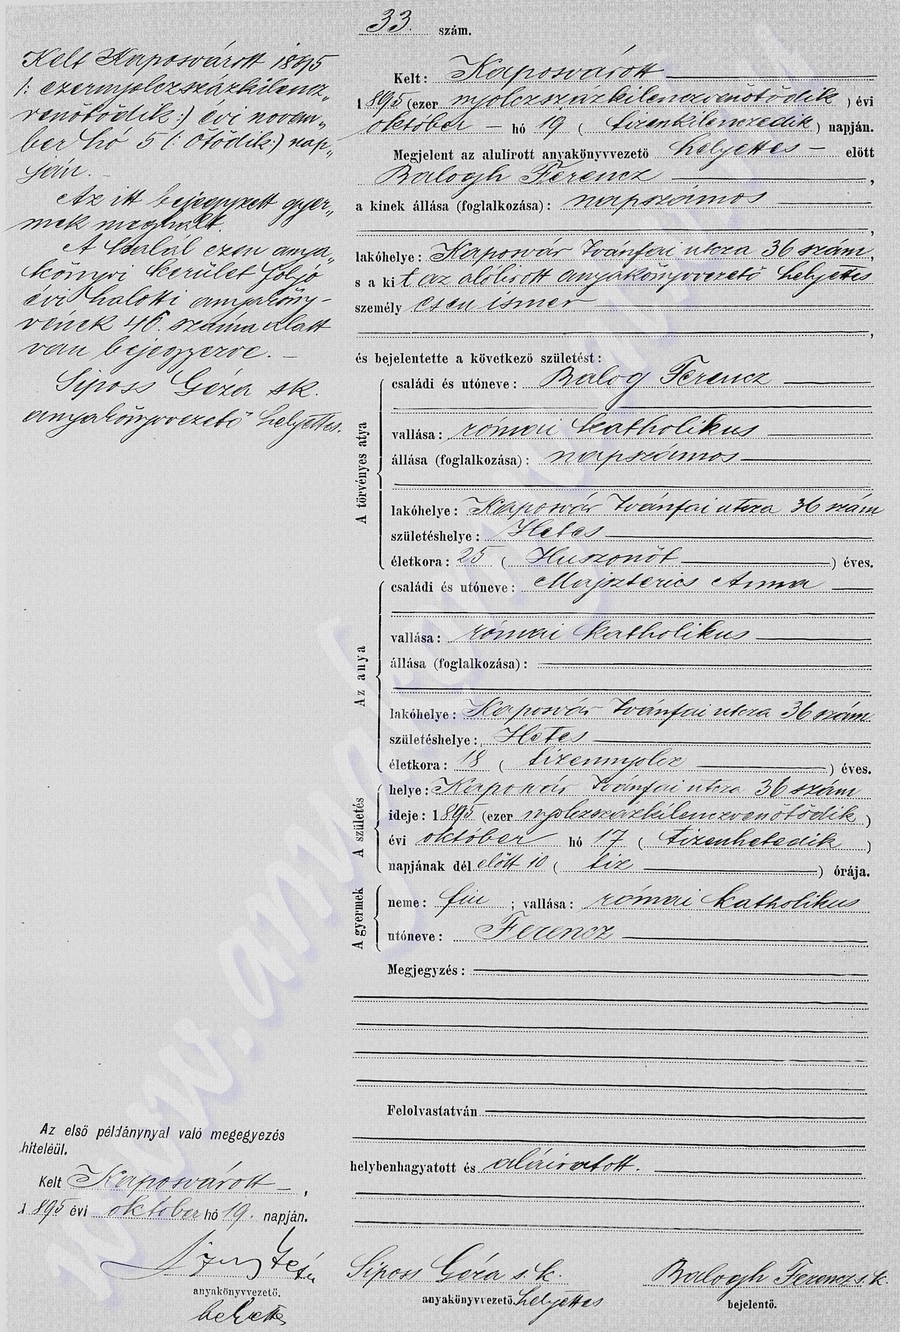 33. szám.
Kelt Kaposvárott 1895
/: ezernyolczszázkilencz„
venötödik :/ évi novem„
ber hó 5 (: ötödik :) nap„
ján. –
Az itt bejegyzett gyer„
mek meghalt.
A halál ezen anya„
könyvi kerület folyó
évi halotti anyaköny-
vének 46. száma alatt
van bejegyezve. –
Siposs Géza sk.
anyakönyvvezető helyettes.
Kelt: Kaposvárott
1895 (ezer nyolczszázkilenczvenötödik) évi
október – hó 19 (tizenkilenczedik) napján.
Megjelent az alulirott anyakönyvvezető helyettes – előtt
Balogh Ferencz,
a kinek állása (foglalkozása): napszámos
,
lakóhelye: Kaposvár Ivánfai utcza 36 szám,
s a kit az alólirott anyakönyvvezető helyettes
személyesen ismer
,
és bejelentette a következő születést:
A törvényes atya
családi és utóneve: Balog Ferencz
vallása: római katholikus
állása (foglalkozása): napszámos
lakóhelye: Kaposvár Ivánfai utcza 36 szám
születéshelye: Hetes
életkora: 25 (Huszonöt) éves.
Az anya
családi és utóneve: Majzterics Anna
vallása: római katholikus
állása (foglalkozása):
lakóhelye: Kaposvár Ivánfai utcza 36 szám
születéshelye: Hetes
életkora: 18 (tizennyolcz) éves.
A születés
helye: Kaposvár Ivánfai utcza 36 szám
ideje: 1895 (ezer nyolczszázkilenczvenötödik)
évi október hó 17 (tizenhetedik)
napjának dél előtt 10 (tiz) órája.
A gyermek
neme: fiu; vallása: római katholikus
utóneve: Ferencz
Megjegyzés:
Felolvastatván
helybenhagyatott és aláiratott.
Az első példánynyal való megegyezés
hiteléül.
Kelt Kaposvárott –,
1895 évi október hó 19. napján.
anyakönyvvezető.
helyettes
Siposs Géza s. k.
anyakönyvvezető helyettes
Balogh Ferencz s. k.
bejelentő.